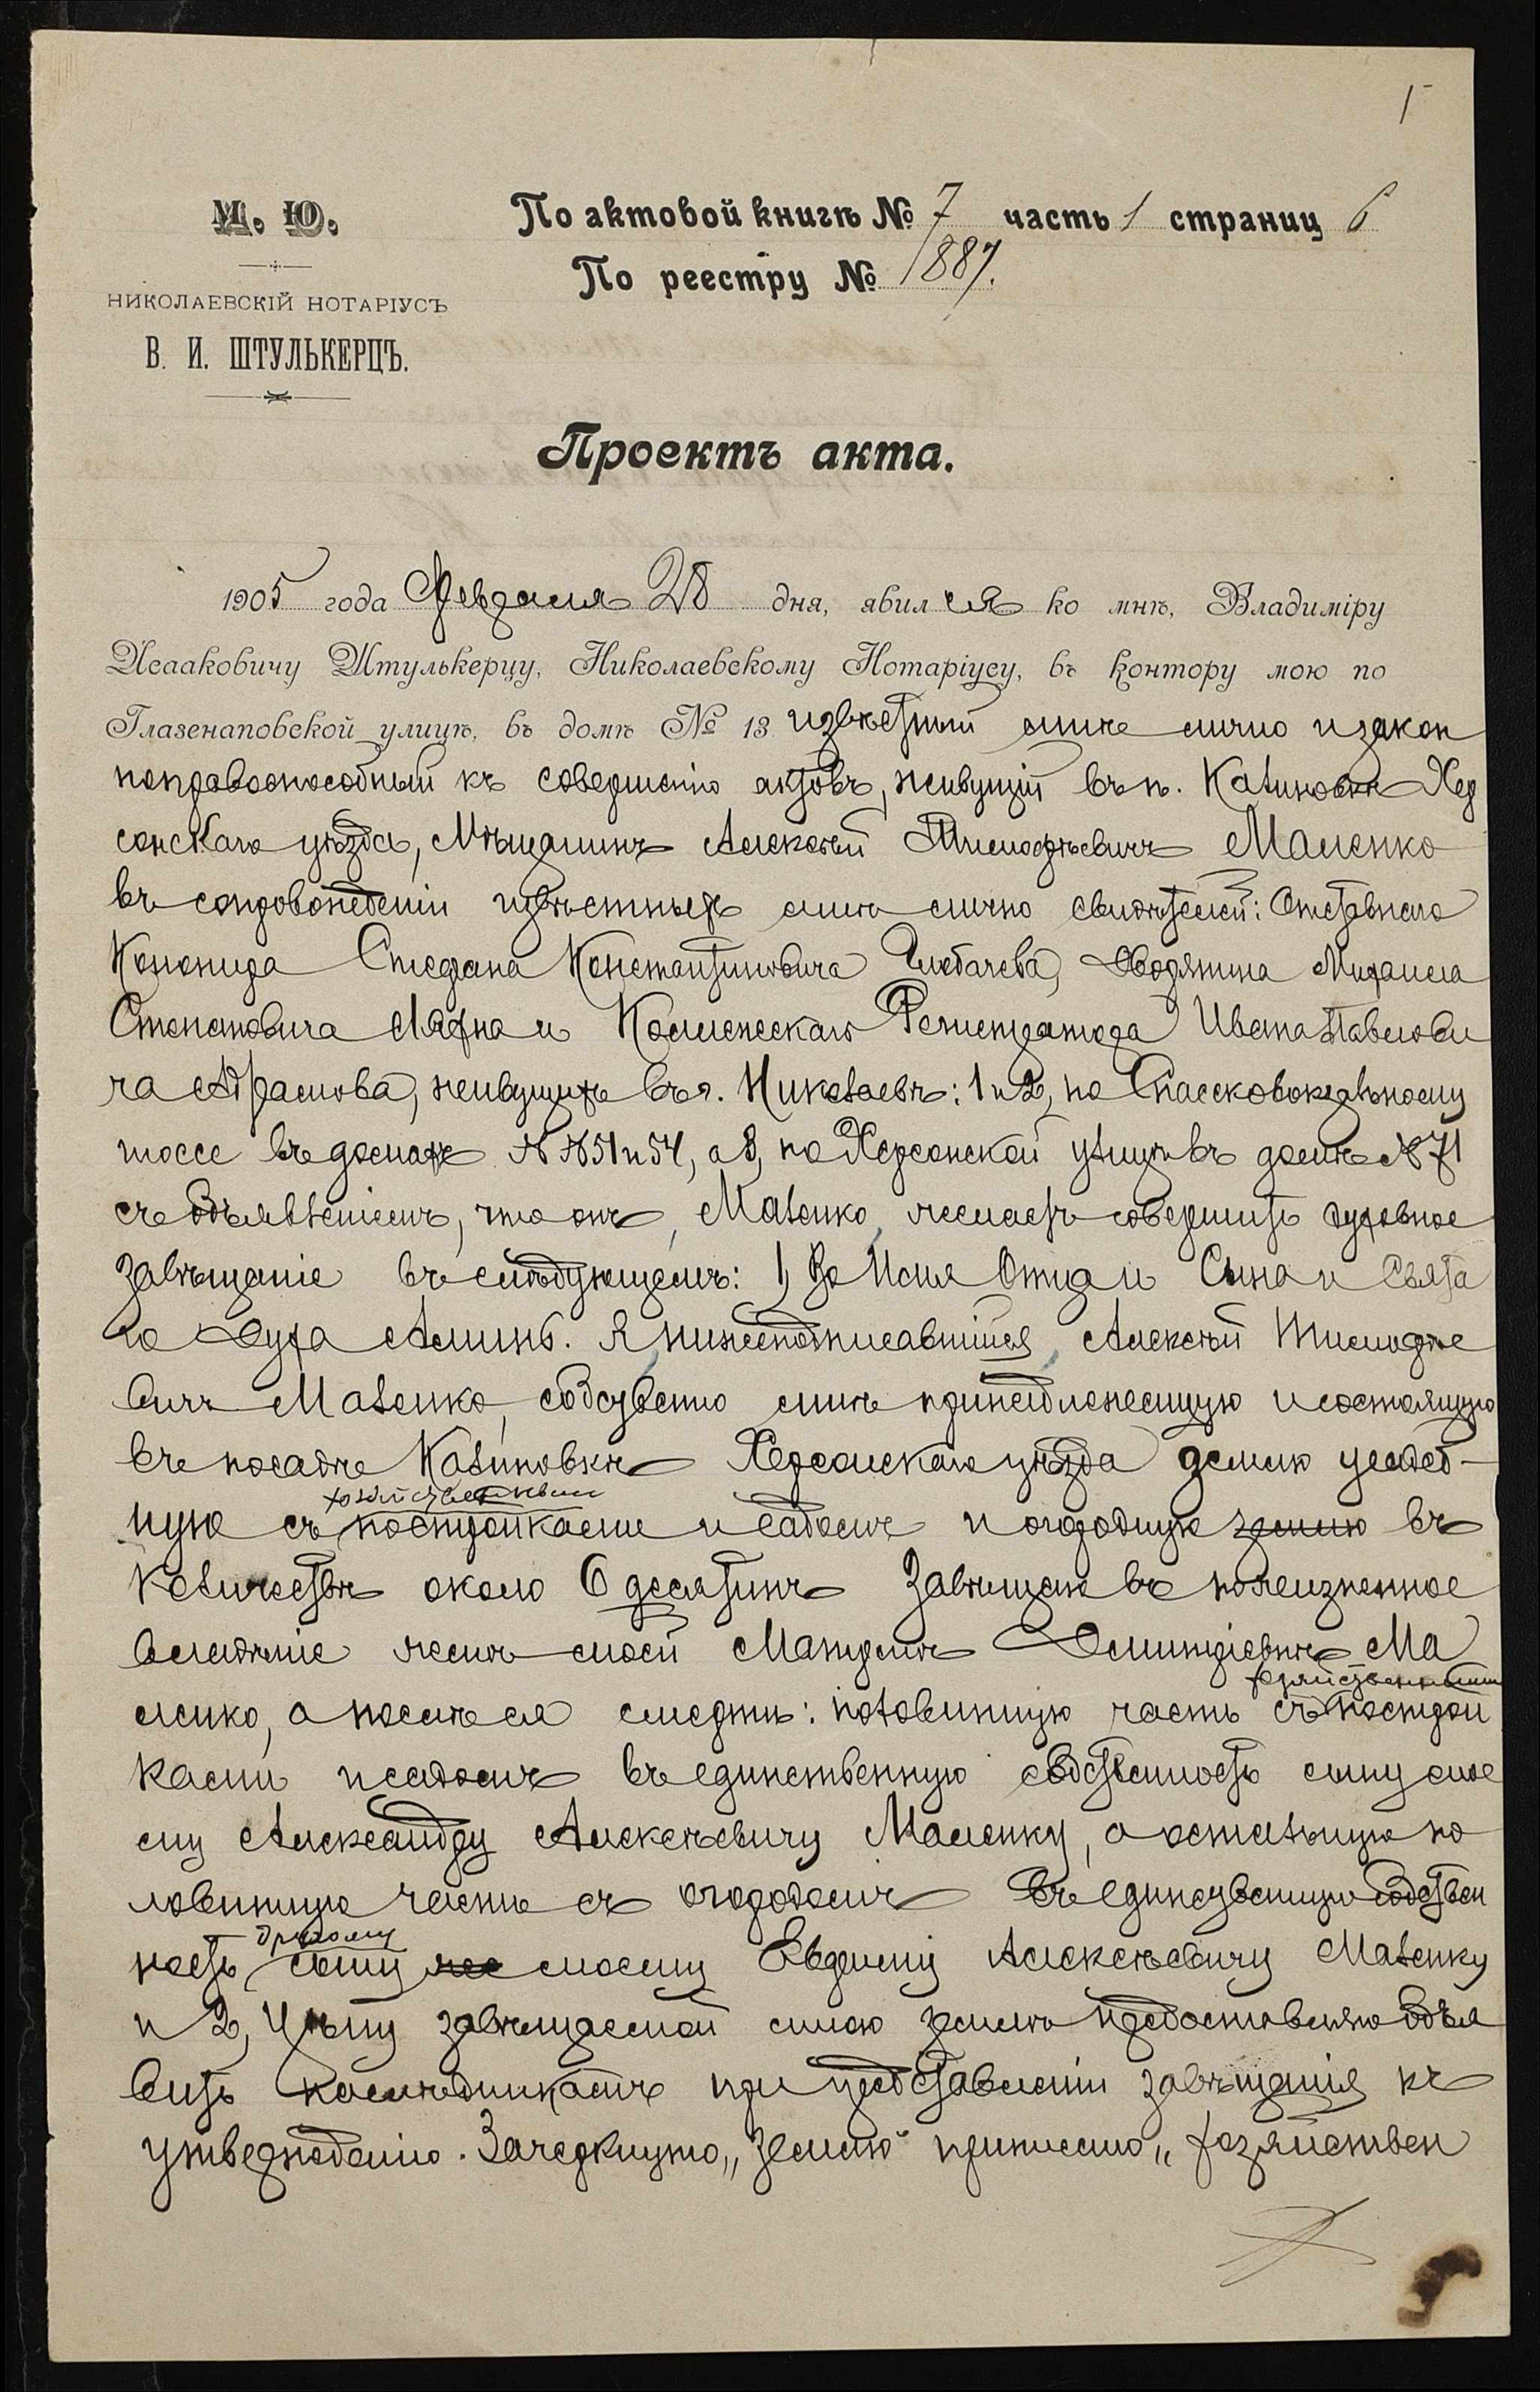 1
М. Ю.
НИКОЛАЕВСКІЙ НОТАРІУСЪ
В. И. ШТУЛЬКЕРЦЪ.
По актовой книгѣ № 7 часть 1 страниц 6
По реестру № 1887.
Проектъ акта.
1905 года Февраля 28 дня, явился ко мнѣ, Владиміру
Исааковичу Штулькерцу, Николаевскому Нотаріусу, въ контору мою по
Глазенаповской улицѣ, въ домѣ № 13 извѣстный мнѣ лично и закон
ноправоспособный къ совершенію актовъ, живущій въ п. Калиновкѣ Хер
сонскаго уѣзда, Мѣщанинъ Алексѣй Тимофѣевичъ Маленко
въ сопровожденіи извѣстныхъ мнѣ лично свидѣтелей: Отставного
Стефана Константиновича Дворянина Михаила
Степановича и Коллежскаго Регистратора Ивана Павлови
ча Абрамова, живущихъ въ г. Николаевѣ: 1 и 2, по Спассковокзальному
шоссе въ домахъ №№ 51 и 54, а 3, по Херсонской улицѣ въ домѣ № 71
съ объявленіемъ, что онъ, Маленко, желаетъ совершить духовное
завѣщаніе въ слѣдующемъ: 1) Во Имя Отца и Сына и Свята
го Духа Аминь. Я, нижеподписавшійся, Алексѣй Тимофѣе
вичъ Маленко, собственно мнѣ принадлежащую и состоящую
въ посадѣ Калиновкѣ Херсонскаго уѣзда землю усадеб-
хозяйственными
ную съ постройками и садомъ и огородную землю въ
количествѣ около 6 десятинъ завѣщаю въ пожизненное
владѣніе женѣ моей Матренѣ Дмитріевнѣ Ма
хозяйственными
ленко, а послѣ ея смерти: половинную часть съ построй
ками и садомъ въ единственную собственность сыну мое
му Александру Алексѣевичу Маленку, а остальную по
ловинную часть съ огородомъ въ единственную собствен
другому
ность сыну же моему Евфимію Алексѣевичу Маленку
и 2, Цѣну завѣщаемой мною земли предоставляю объя
вить наслѣдникамъ при представленіи завѣщанія къ
утвержденію. Зачеркнуто „землю" приписано „хозяйствен